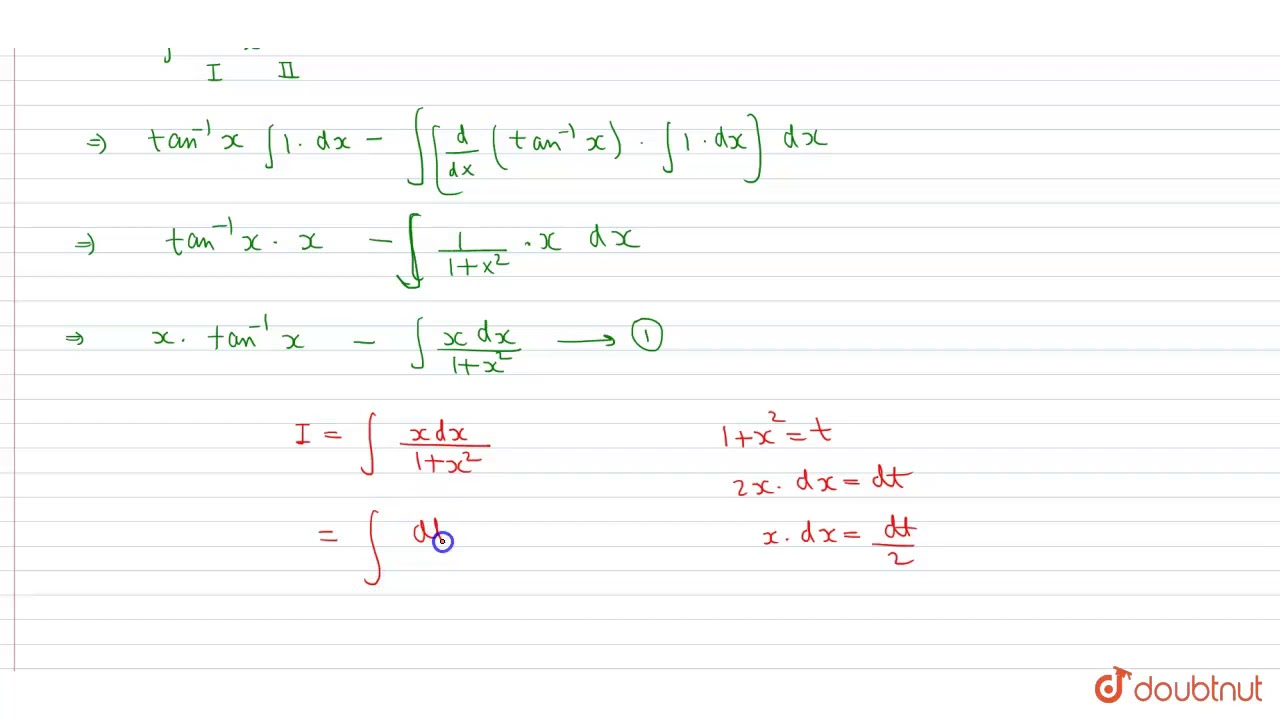 I II
⇒ tan⁻¹ x ∫ 1 · dx − ∫ [ d/dx ( tan⁻¹ x ) · ∫ 1 · dx ] dx
⇒ tan⁻¹ x · x − ∫ 1/1+x² · x dx
⇒ x · tan⁻¹ x − ∫ x dx/1+x² ⟶ ①
I = ∫ x dx/1+x² 1+x² = t
2x · dx = dt
= ∫ d x · dx = dt/2
doubtnut